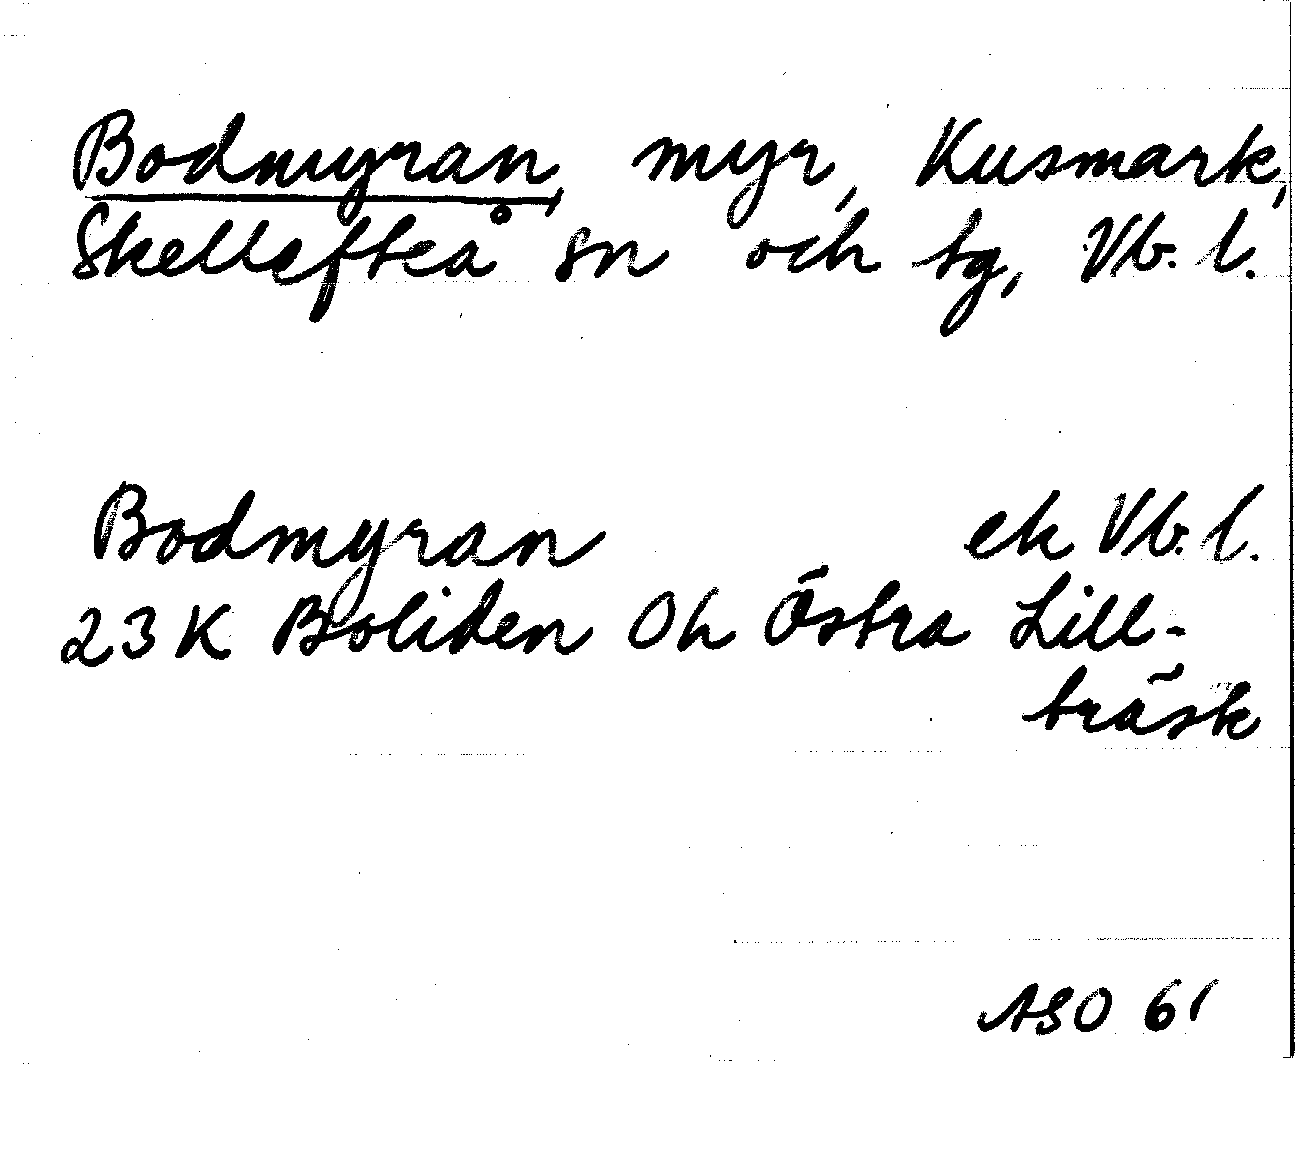 Bodmyran, myr, Kusmark,
Skellefteå sn och tg, Vb. l.
Bodmyran ek Vb. l.
23 K Boliden Oh Östra Lill-
träsk
ASO 61